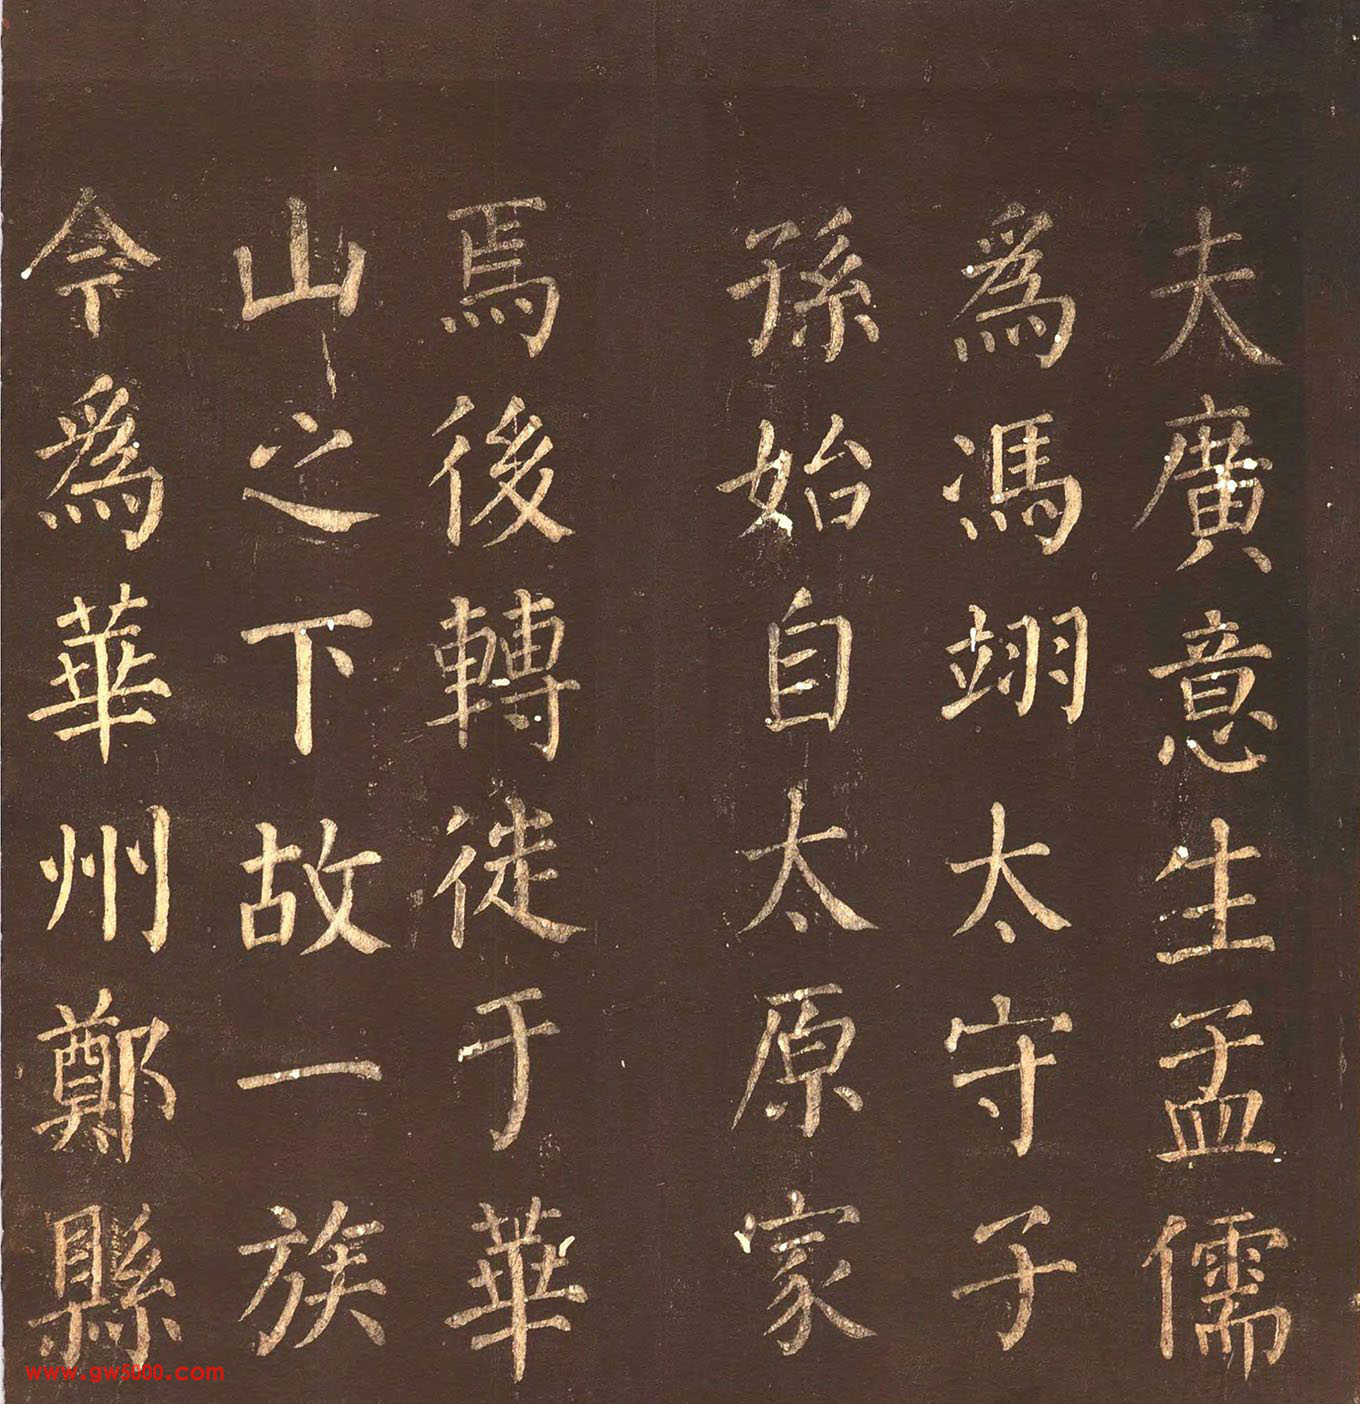 夫廣意生孟儒
爲馮翊太守子
孫始自太原家
焉後轉徙于華
山之下故一族
今爲華州鄭縣
www.gw5800.com